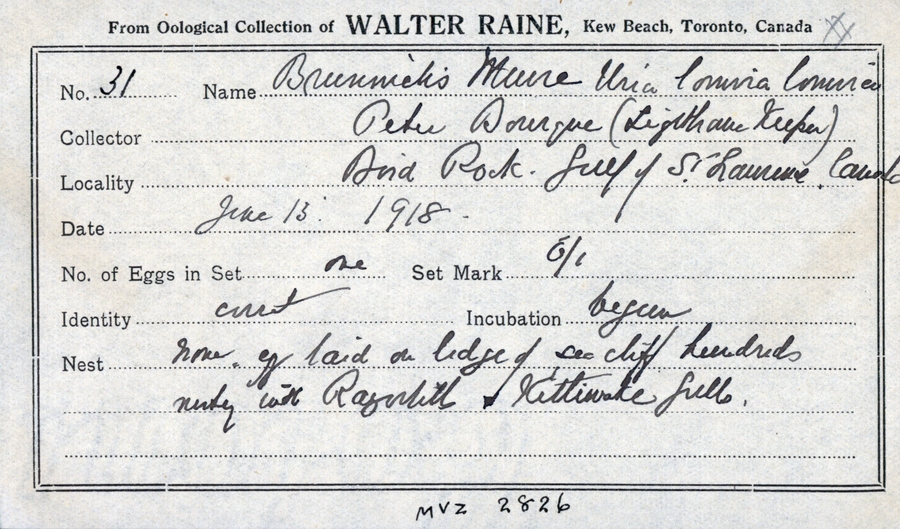 From Oological Collection of WALTER RAINE, Kew Beach, Toronto, Canada
No. 31 Name Brunnichs Murre Uria lomvia lomvia
Collector Peter Bourque (Lighthouse Keeper)
Locality Bird Rock. Gulf of St Lawrence. Canada
Date June 13. 1918.
No. of Eggs in Set one Set Mark 6/1
Identity correct Incubation begun
Nest none. egg laid on ledge of sea cliff hundreds
nesting with Razorbills & Kittiwake Gulls.
MVZ 2826